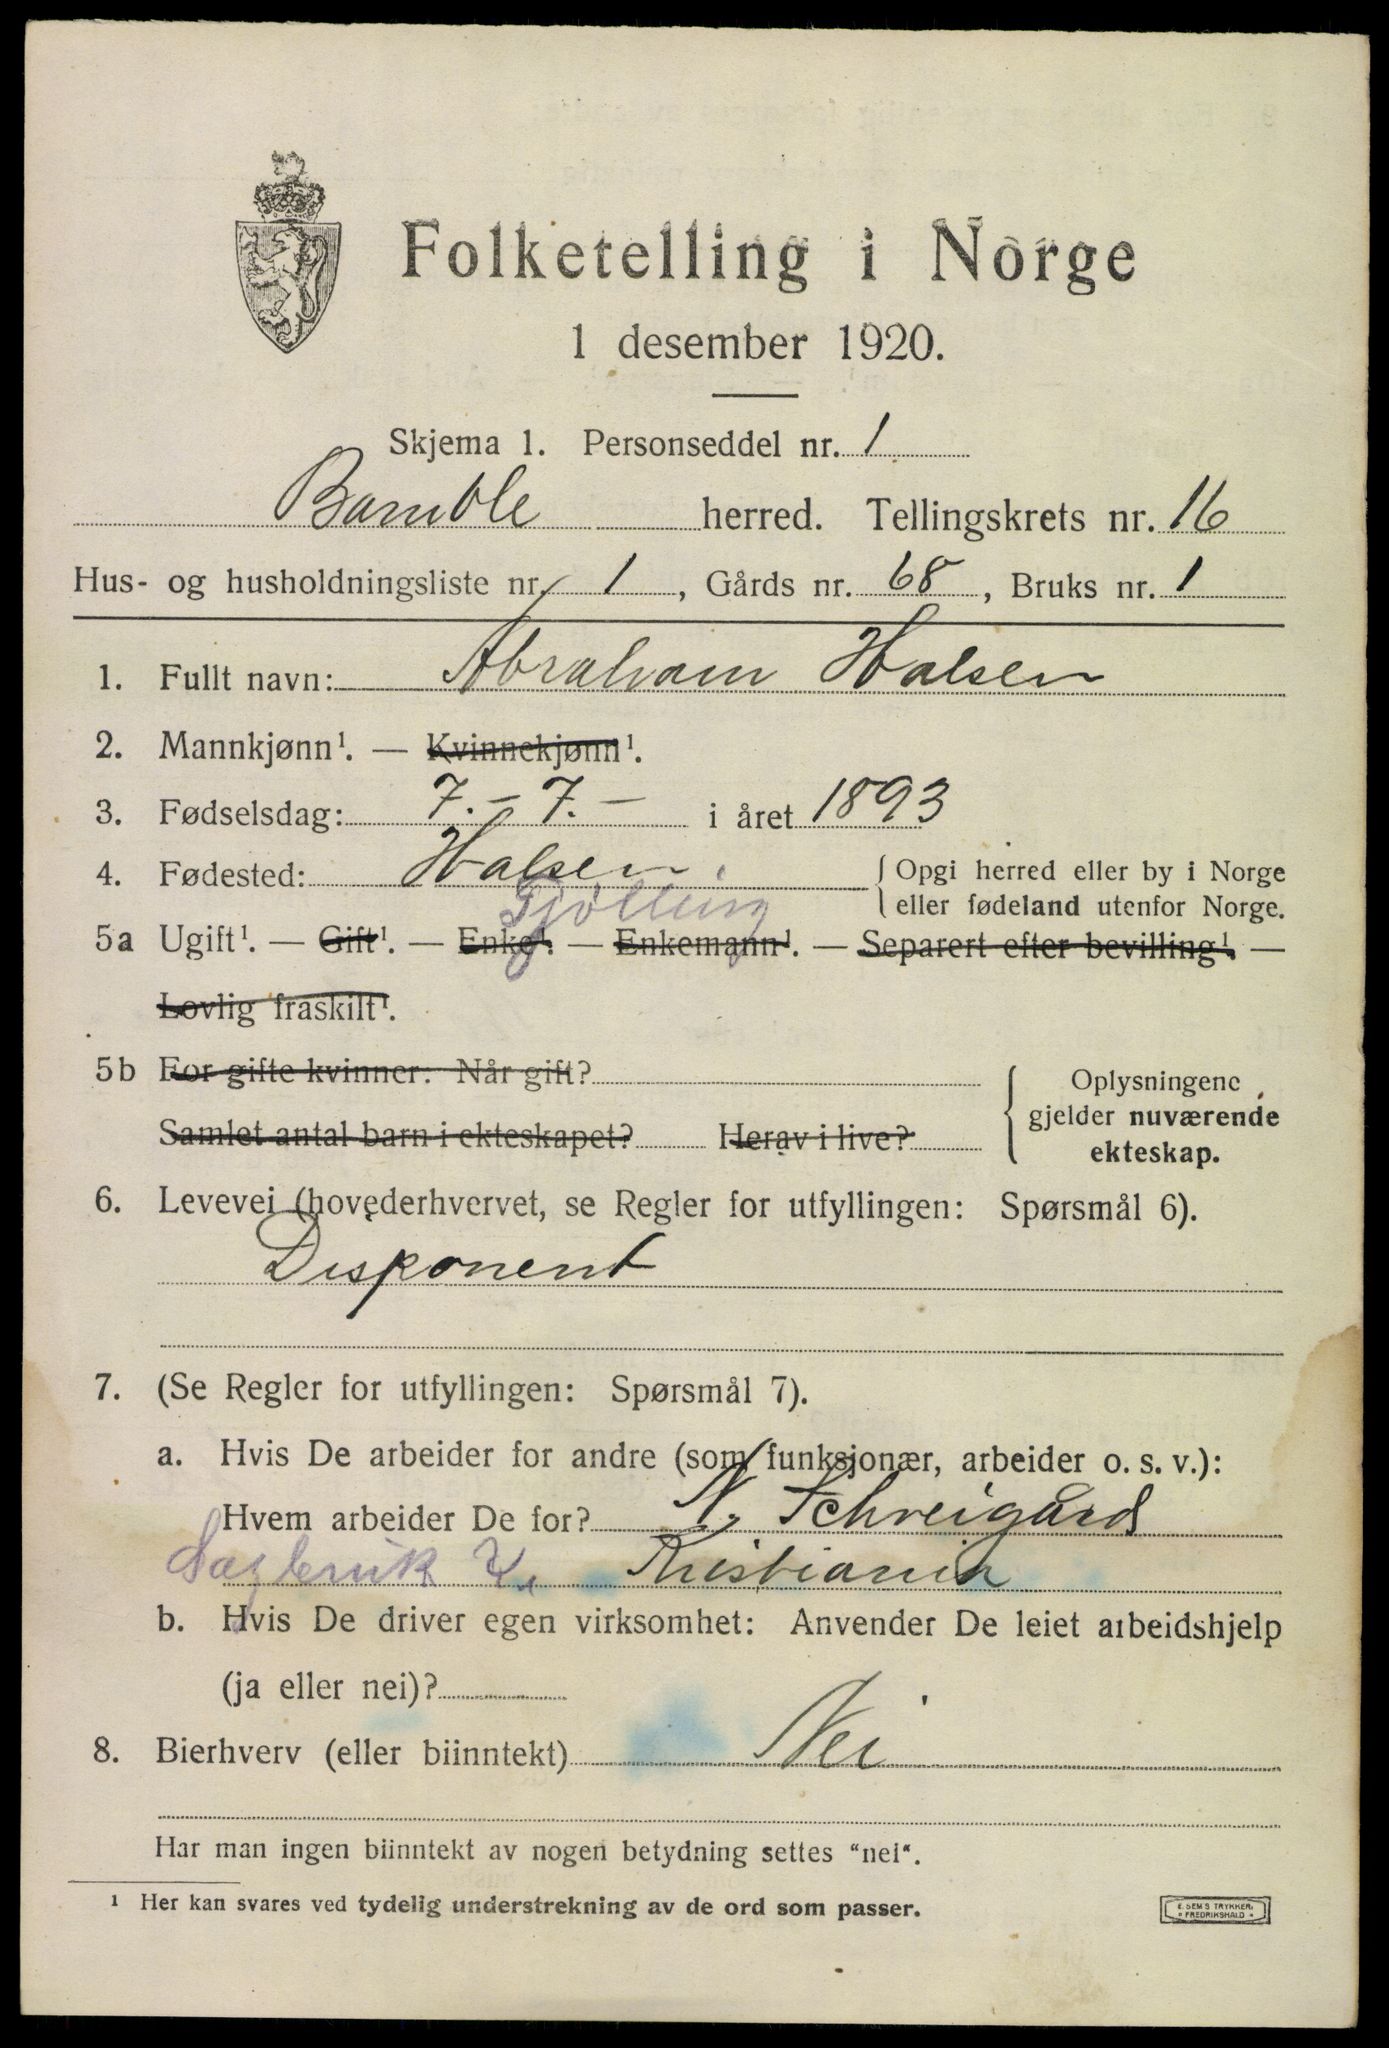 Folketelling i Norge
1 desember 1920.
Skjema 1. Personseddel nr. 1
Bamble herred. Tellingskrets nr. 16
Hus- og husholdningsliste nr. 1, Gårds nr. 68, Bruks nr. 1
1. Fullt navn: Abraham Halsen
2. Mannkjønn¹. — Kvinnekjønn¹.
3. Fødselsdag: 7. – 7. – i året 1893
4. Fødested: Halsen, { Opgi herred eller by i Norge
eller fødeland utenfor Norge.
Tjølling
5a Ugift¹. — Gift¹. — Enke¹. — Enkemann¹. — Separert efter bevilling¹. —
Lovlig fraskilt¹.
5b For gifte kvinner: Når gift?
Samlet antal barn i ekteskapet? Herav i live?
Oplysningene
gjelder nuværende
ekteskap.
6. Levevei (hovederhvervet, se Regler for utfyllingen: Spørsmål 6).
Disponent
7. (Se Regler for utfyllingen: Spørsmål 7).
a. Hvis De arbeider for andre (som funksjonær, arbeider o. s. v.):
Hvem arbeider De for? N. Schreigård
Sagbruk Kristiania
b. Hvis De driver egen virksomhet: Anvender De leiet arbeidshjelp
(ja eller nei)?
8. Bierhverv (eller biinntekt) Nei
Har man ingen biinntekt av nogen betydning settes "nei".
¹ Her kan svares ved tydelig understrekning av de ord som passer.
E. SEM'S TRYKKERI
FREDRIKSHALD